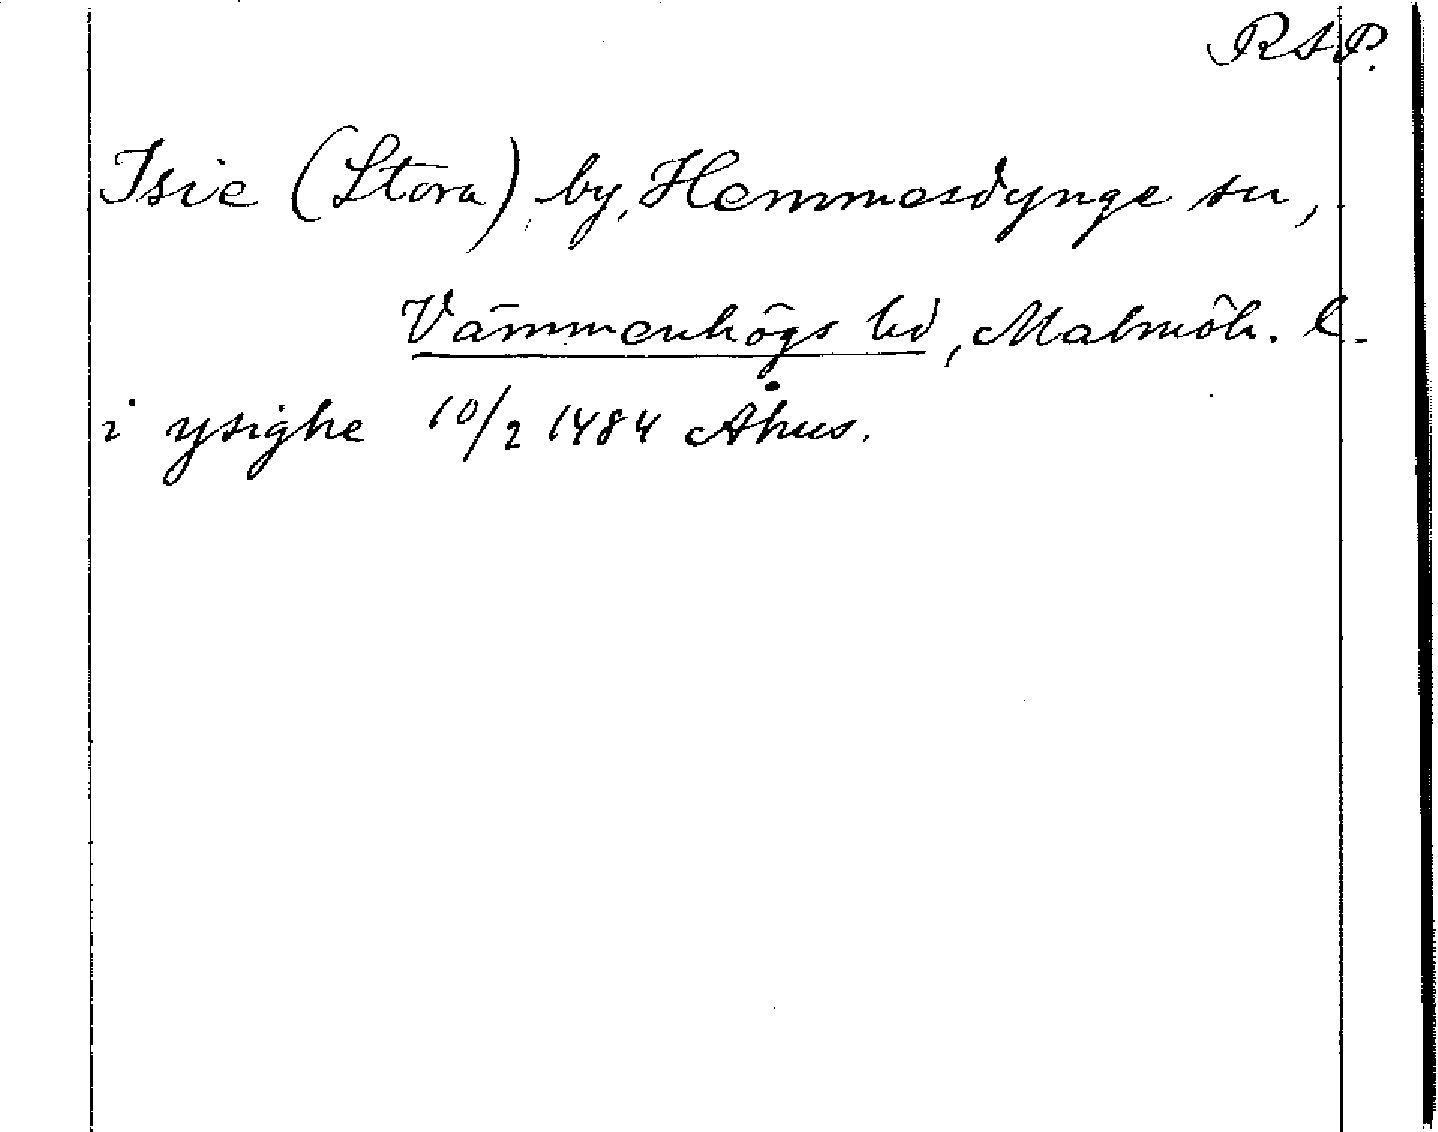 RAP.
Isie (Stora), by, Hemmesdynge sn,
Vämmenhögs hd, Malmöh. l.
i ysighe 10/2 1484 Åhus.